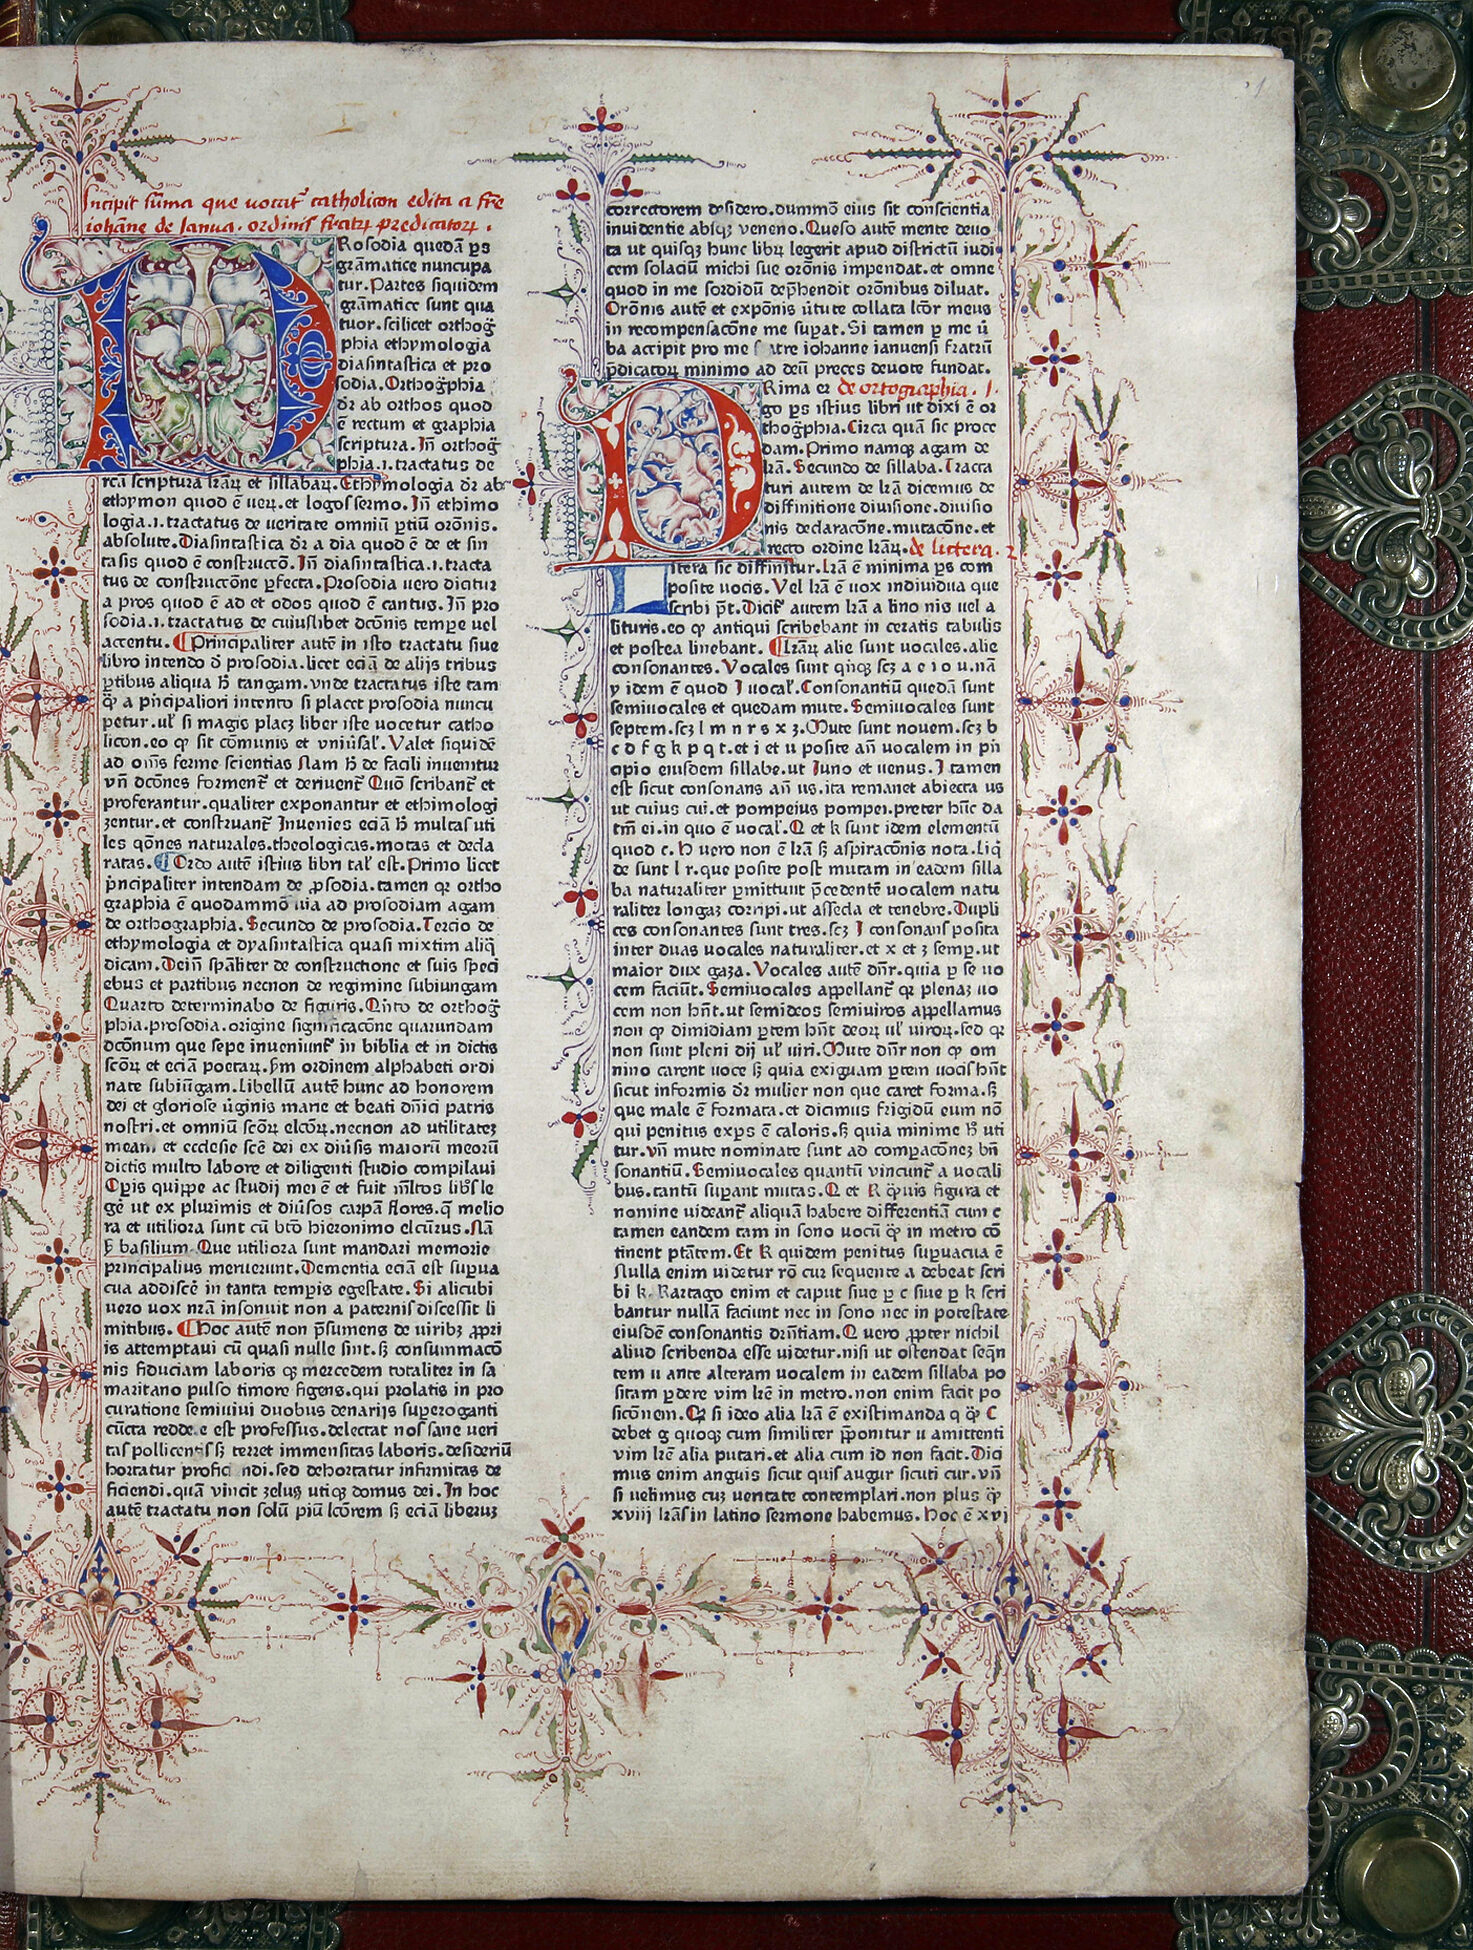 Incipit sūma que vocat᷑ catholicon edita a fr̄e
iohāne de Ianua . ordinis fratꝝ predicatoꝝ .
Rosodia quedā ꝑs
grāmatice nuncupa
tur. Partes siquidem
grāmatice sunt qua
tuor. scilicet orthog̃
phia ethymologia
diasintastica et pro
sodia. Orthog̃phia
dr̄ ab orthos quod
ē rectum et graphia
scriptura. Iñ orthog̃
phia .i. tractatus de
rc̄a scriptura lr̄aꝝ et sillabaꝝ. Ethymologia dr̄ ab
ethymon quod ē ueꝝ. et logos sermo. Iñ ethimo
logia .i. tractatus de ueritate omniū ꝑtiū or̄onis.
absolute. Diasintastica dr̄ a dia quod ē de et sin
tasis quod ē construccō. Iñ diasintastica .i. tracta
tus de construccōne ꝑfecta. Prosodia uero dicitur
a pros quod ē ad et odos quod ē cantus. Iñ pro
sodia .i. tractatus de cuiuslibet dcōnis tempe uel
accentu. ¶Principaliter autē in isto tractatu siue
libro intendo d̄ prosodia. licet eciā de alijs tribus
ꝑtibus aliqua h̄ tangam. vnde tractatus iste tam
q̄ꝫ a pͥncipaliori intento si placet prosodia nuncu
petur. ul̕ si magis placꝫ liber iste uocetur catho
licon. eo ꝙ sit cōmunis et vniūsal̕. Valet siquidē
ad oīns ferme scientias Nam h̄ de facili inuenitur
vñ dcōnes forment᷑ et deriuent᷑ Quō scribant᷑ et
proferantur. qualiter exponantur et ethimologi
zentur. et construant᷑ Inuenies eciā h̄ multas uti
les qōnes naturales. theologicas. motas et decla
ratas. ¶Ordo autē istius libri tal̕ est. Primo licet
pͥncipaliter intendam de ꝓsodia. tamen qꝛ ortho
graphia ē quodammō uia ad prosodiam agam
de orthographia. Secundo de prosodia. Tercio de
ethymologia et dyasintastica quasi mixtim aliq̄
dicam. Deiñ spāliter de constructione et suis speci
ebus et partibus necnon de regimine subiungam
Quarto determinabo de figuris. Qn̄to de orthog̃
phia. prosodia. origine significacōne quarundam
dcōnum que sepe inueniunt᷑ in biblia et in dictis
scōꝝ et eciā poetaꝝ. scd̄m ordinem alphabeti ordi
nate subiūgam. Libellū autē hunc ad honorem
dei et gloriose ūginis marie et beati dn̄ici patris
nostri. et omniū scōꝝ elcōꝝ. necnon ad utilitateꝫ
meam et ecclesie scē dei ex diūsis maioꝝ meorū
dictis multo labore et diligenti studio compilaui
Opͥs quippe ac studij mei ē et fuit ml̄tos libͦs le
gē ut ex plurimis et diūsos carpā flores. q̄ melio
ra et utiliora sunt cū btō hieronimo elcūrus. Nā
h̄ basilium. Que utiliora sunt mandari memorie
principalius meruerunt. Dementia eciā est supua
cua addiscē in tanta tempis egestate. Si alicubi
uero uox nr̄a insonuit non a paternis discessit li
mitibus. ¶Hoc autē non p̄sumens de uiribꝫ ꝓpri
is attemptaui cū quasi nulle sint. sꝫ consummacō
nis fiduciam laboris qꝫ mercedem totaliter in sa
maritano pulso timore figens. qui prolatis in pro
curatione semiuiui duobus denarijs supeŕoganti
cūcta redde e est professus. delectat nos sane ueri
tas pollicentis sꝫ terret immensitas laboris. desideriū
hortatur profici ndi. sed dehortatur infirmitas de
ficiendi. quā vincit zelus utiqꝫ domus dei. In hoc
autē tractatu non solū piū lcōrem sꝫ eciā liberuꝫ
correctorem desidero. dummō eius sit conscientia
inuidentie absqꝫ veneno. Queso autē mente deuo
ta ut quisqꝫ hunc libꝝ legerit apud districtū iudi
cem solaciū michi sue or̄onis impendat. et omne
quod in me sordidū dep̄hendit or̄onibus diluat.
Or̄onis autē et expōnis ūtute collata lcōr meus
in recompensacōne me supat. Si tamen ꝑ me ū
ba accipit pro me fratre iohanne ianuensi fratrū
p̄dicatoꝝ minimo ad deū preces deuote fundat.
Rima er de ortographia . I .
go ꝑs istius libri ut dixi ē or
thog̃phia. Circa quā sic proce
dam. Primo namqꝫ agam de
lr̄a. Secundo de sillaba. Tracta
turi autem de lr̄a dicemus de
diffinitione diuisione. diuisio
nis declaracōne. mutacōne. et
recto ordine lr̄aꝝ. de littera . 2
itera sic diffinitur. Lr̄a ē minima ꝑs com
posite uocis. Vel lr̄a ē uox indiuidua que
scribi pt̄. Dicit᷑ autem lr̄a a lino nis uel a
lituris. eo ꝙ antiqui scribebant in ceratis tabulis
et postea linebant. ¶Lr̄aꝝ alie sunt uocales. alie
consonantes. Vocales sunt qn̄qꝫ scꝫ a e i o u. nā
y idem ē quod I uocal̕. Consonantiū quedā sunt
semiuocales et quedam mute. Semiuocales sunt
septem. scꝫ l m n r s x z. Mute sunt nouem. scꝫ b
c d f g k p q t. et i et u posite añ uocalem in pͥn
cipio eiusdem sillabe. ut Iuno et uenus. I tamen
est sicut consonans añ us. ita remanet abiecta us
ut cuius cui. et pompeius pompei. preter hūc da
tm̄ ei. in quo ē uocal̕. Q et k sunt idem elementū
quod c. H uero non ē lr̄a sꝫ aspiracōnis nota. Liq̄
de sunt l r. que posite post mutam in eadem silla
ba naturaliter ꝑmittunt p̄cedentē uocalem natu
raliter longaꝫ corripi. ut assecla et tenebre. Dupli
ces consonantes sunt tres. scꝫ I consonans posita
inter duas uocales naturaliter. et x et z semp. ut
maior dux gaza. Vocales autē dn̄r. quia ꝑ se uo
cem faciūt. Semiuocales appellant᷑ qꝛ plenaꝫ uo
cem non hn̄t. ut semideos semiuiros appellamus
non ꝙ dimidiam ꝑtem hn̄t deoꝝ ul̕ uiroꝝ. sed qꝛ
non sunt pleni dij ul̕ uiri. Mute dn̄r non ꝙ om
nino carent uoce sꝫ quia exiguam ꝑtem uocis hn̄t
sicut informis dr̄ mulier non que caret forma. sꝫ
que male ē formata. et dicimus frigidū eum nō
qui penitus exꝑs ē caloris. sꝫ quia minime h̄ uti
tur. vñ mute nominate sunt ad compacōneꝫ bñ
sonantiū. Semiuocales quantū vincunt᷑ a uocali
bus. tantū supant mutas. Q et K qͣuis figura et
nomine uideant᷑ aliquā habere differentiā cum c
tamen eandem tam in sono uocū q̄ꝫ in metro cō
tinent ptātem. Et K quidem penitus supuacua ē
Nulla enim uidetur rō cur sequente a debeat scri
bi k. Kartago enim et caput siue ꝑ c siue ꝑ k scri
bantur nullā faciunt nec in sono nec in potestate
eiusdē consonantis drn̄tiam. Q uero ꝓpter nichil
aliud scribenda esse uidetur. nisi ut ostendat seqn̄
tem u ante alteram uocalem in eadem sillaba po
sitam ꝑdere vim lr̄e in metro. non enim facit po
sicōnem. Qꝫ si ideo alia lr̄a ē existimanda q q̄ꝫ c
debet g quoqꝫ cum similiter p̄ponitur u amittenti
vim lr̄e alia putari. et alia cum id non facit. Dici
mus enim anguis sicut quis augur sicuti cur. vñ
si uelimus cuꝫ ueritate contemplari. non plus q̄ꝫ
xviij lr̄as in latino sermone habemus. Hoc ē xvi